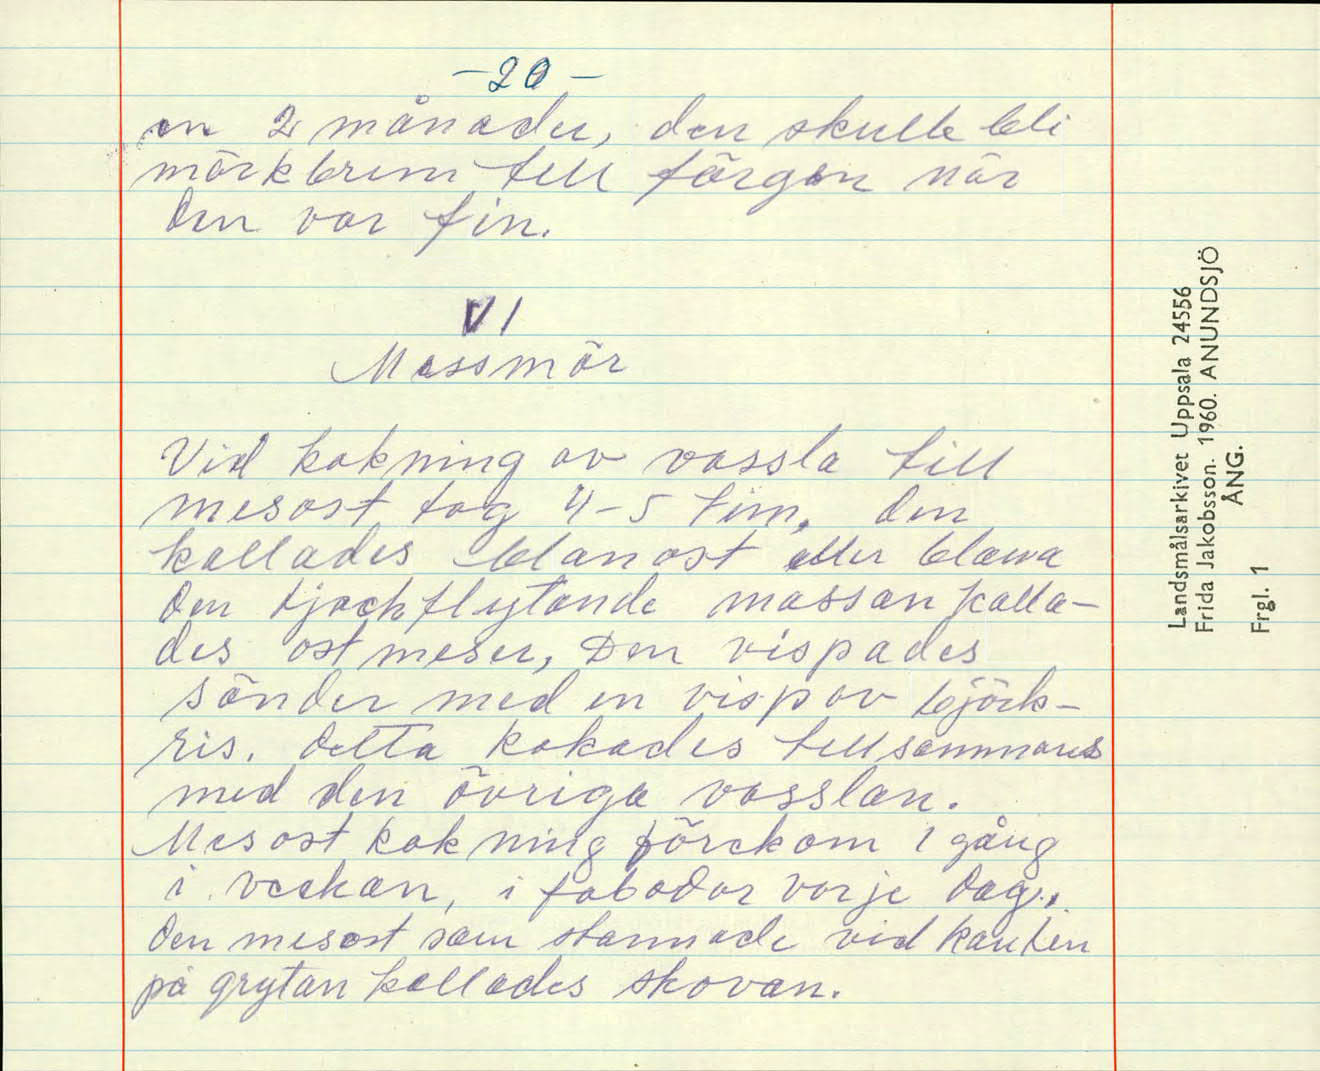 -20-
en 2 månader, den skulle bli
mörkbrun till färgen när
den var fin.
VI
Messmör
Vid kokning av vassla till
mesost tog 4-5 tim, den
kallades blanost eller
Den tjockflytande massan kalla-
des ostmeser, Den vispades
sönder med en visp av björk-
ris. Detta kokades tillsammans
med den övriga vasslan.
Mesost kokning förekom 1 gång
i veckan, i fabodar varje dag.
Den mesost som stannade vid kanten
på grytan kallades skovan.
Landsmålsarkivet Uppsala 24556
Frida Jakobsson. 1960. ANUNDSJÖ
ÅNG.
Frgl. 1